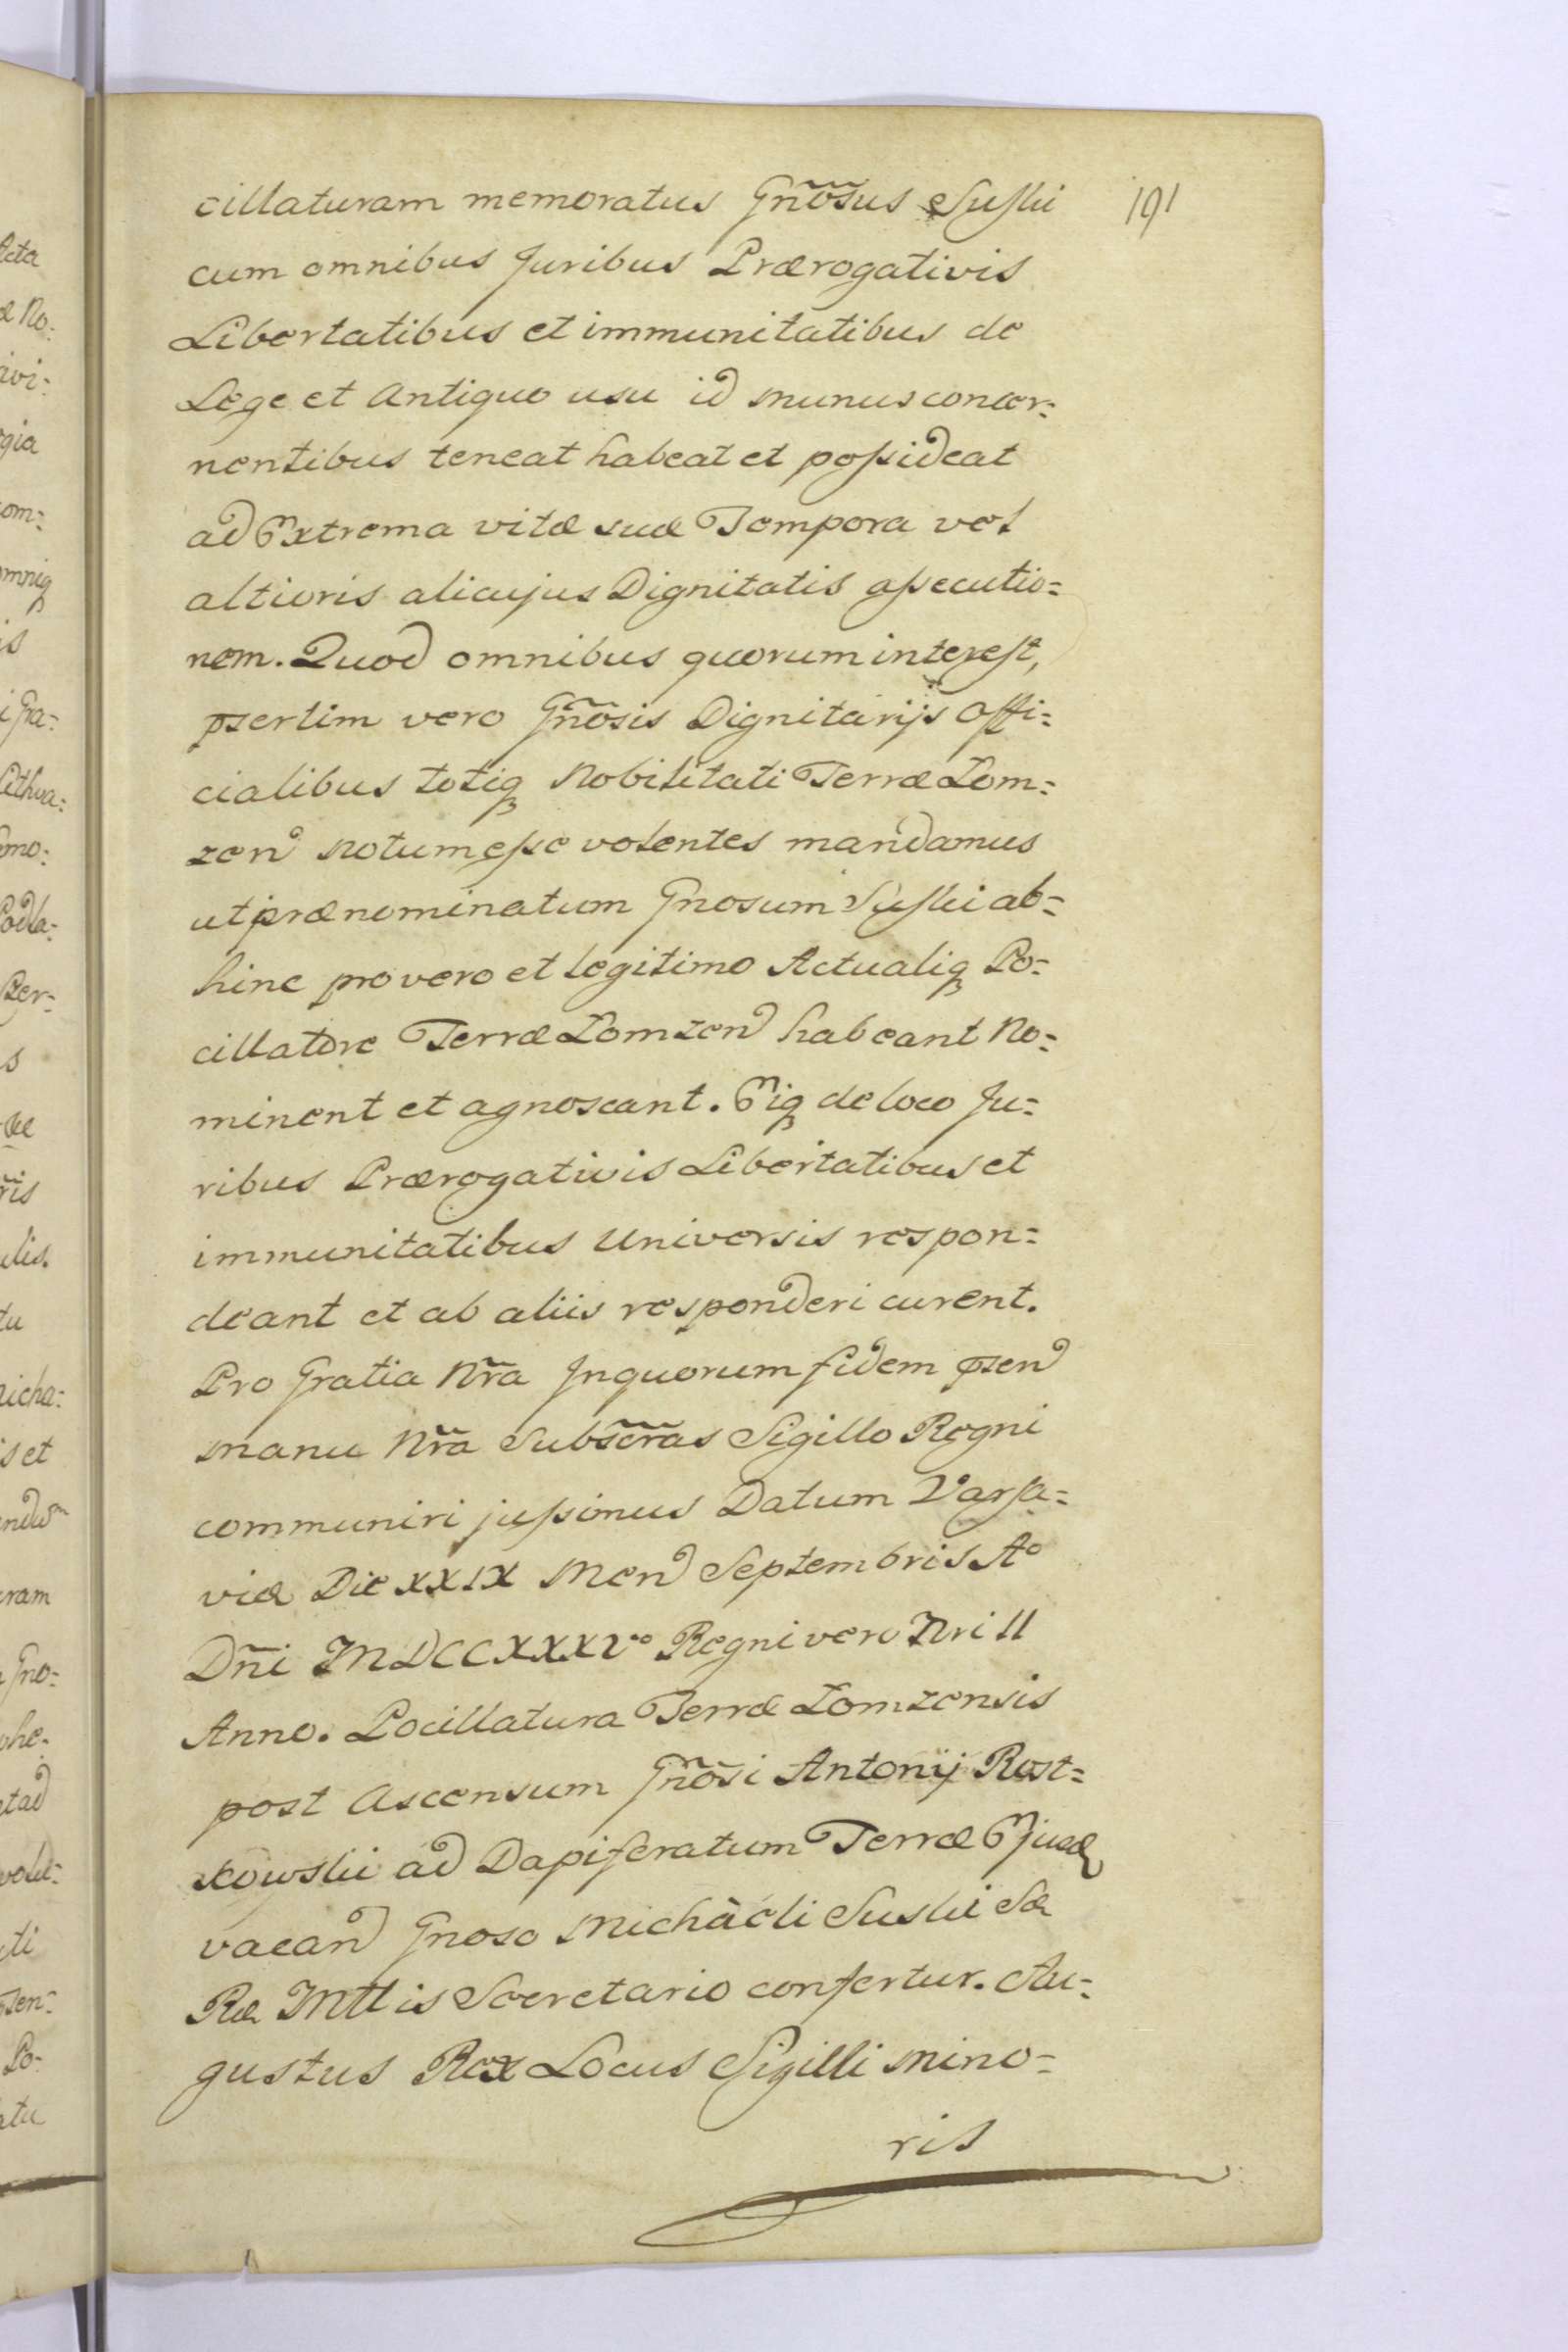 191
cillaturam memoratus Gñõsus Suski
cum omnibus Juribus Prærogativis
Libertatibus et immunitatibus de
Lege et Antiquo usu id munus concer=
nentibus teneat habeat et poſsideat
ad Extrema vitæ suæ Tempora vel
altioris alicujus Dignitatis aſsecutio=
nem. Quod omnibus quorum intereſt,
pserlim vero Gñõsis Dignitarijs Offi=
cialibus totiq Nobilitati Terræ Lom=
zen notum eſse volentes mandamus
ut prænominatum Gnosum Suski ab=
hinc pro vero et legitimo Actualiq Po=
cillatore Terræ Lomzen habeant No=
minent et agnoscant. Eiq de loco Ju=
ribus Prærogativis Libertatibus et
immunitatibus Universis respon=
deant et ab aliis responderi curent.
Pro Gratia Nr̃a Jnquorum fidem psen
manu Nr̃a Subscr̃as Sigillo Regni
communiri juſsimus Datum Varſa=
viæ Die XXIX Men Septembris Aº
Dñi MDCCXXXVº Regni vero Nri II
Anno. Pocillatura Terræ Lomzensis
post Ascensum Gñõsi Antonij Rost=
kowski ad Dapiferatum Terræ Ejusd
vacan Gnoso Michaeli Suski Sæ
Ræ Mttis Secretario confertur. Au=
gustus Rex Locus Sigilli mino=
ris